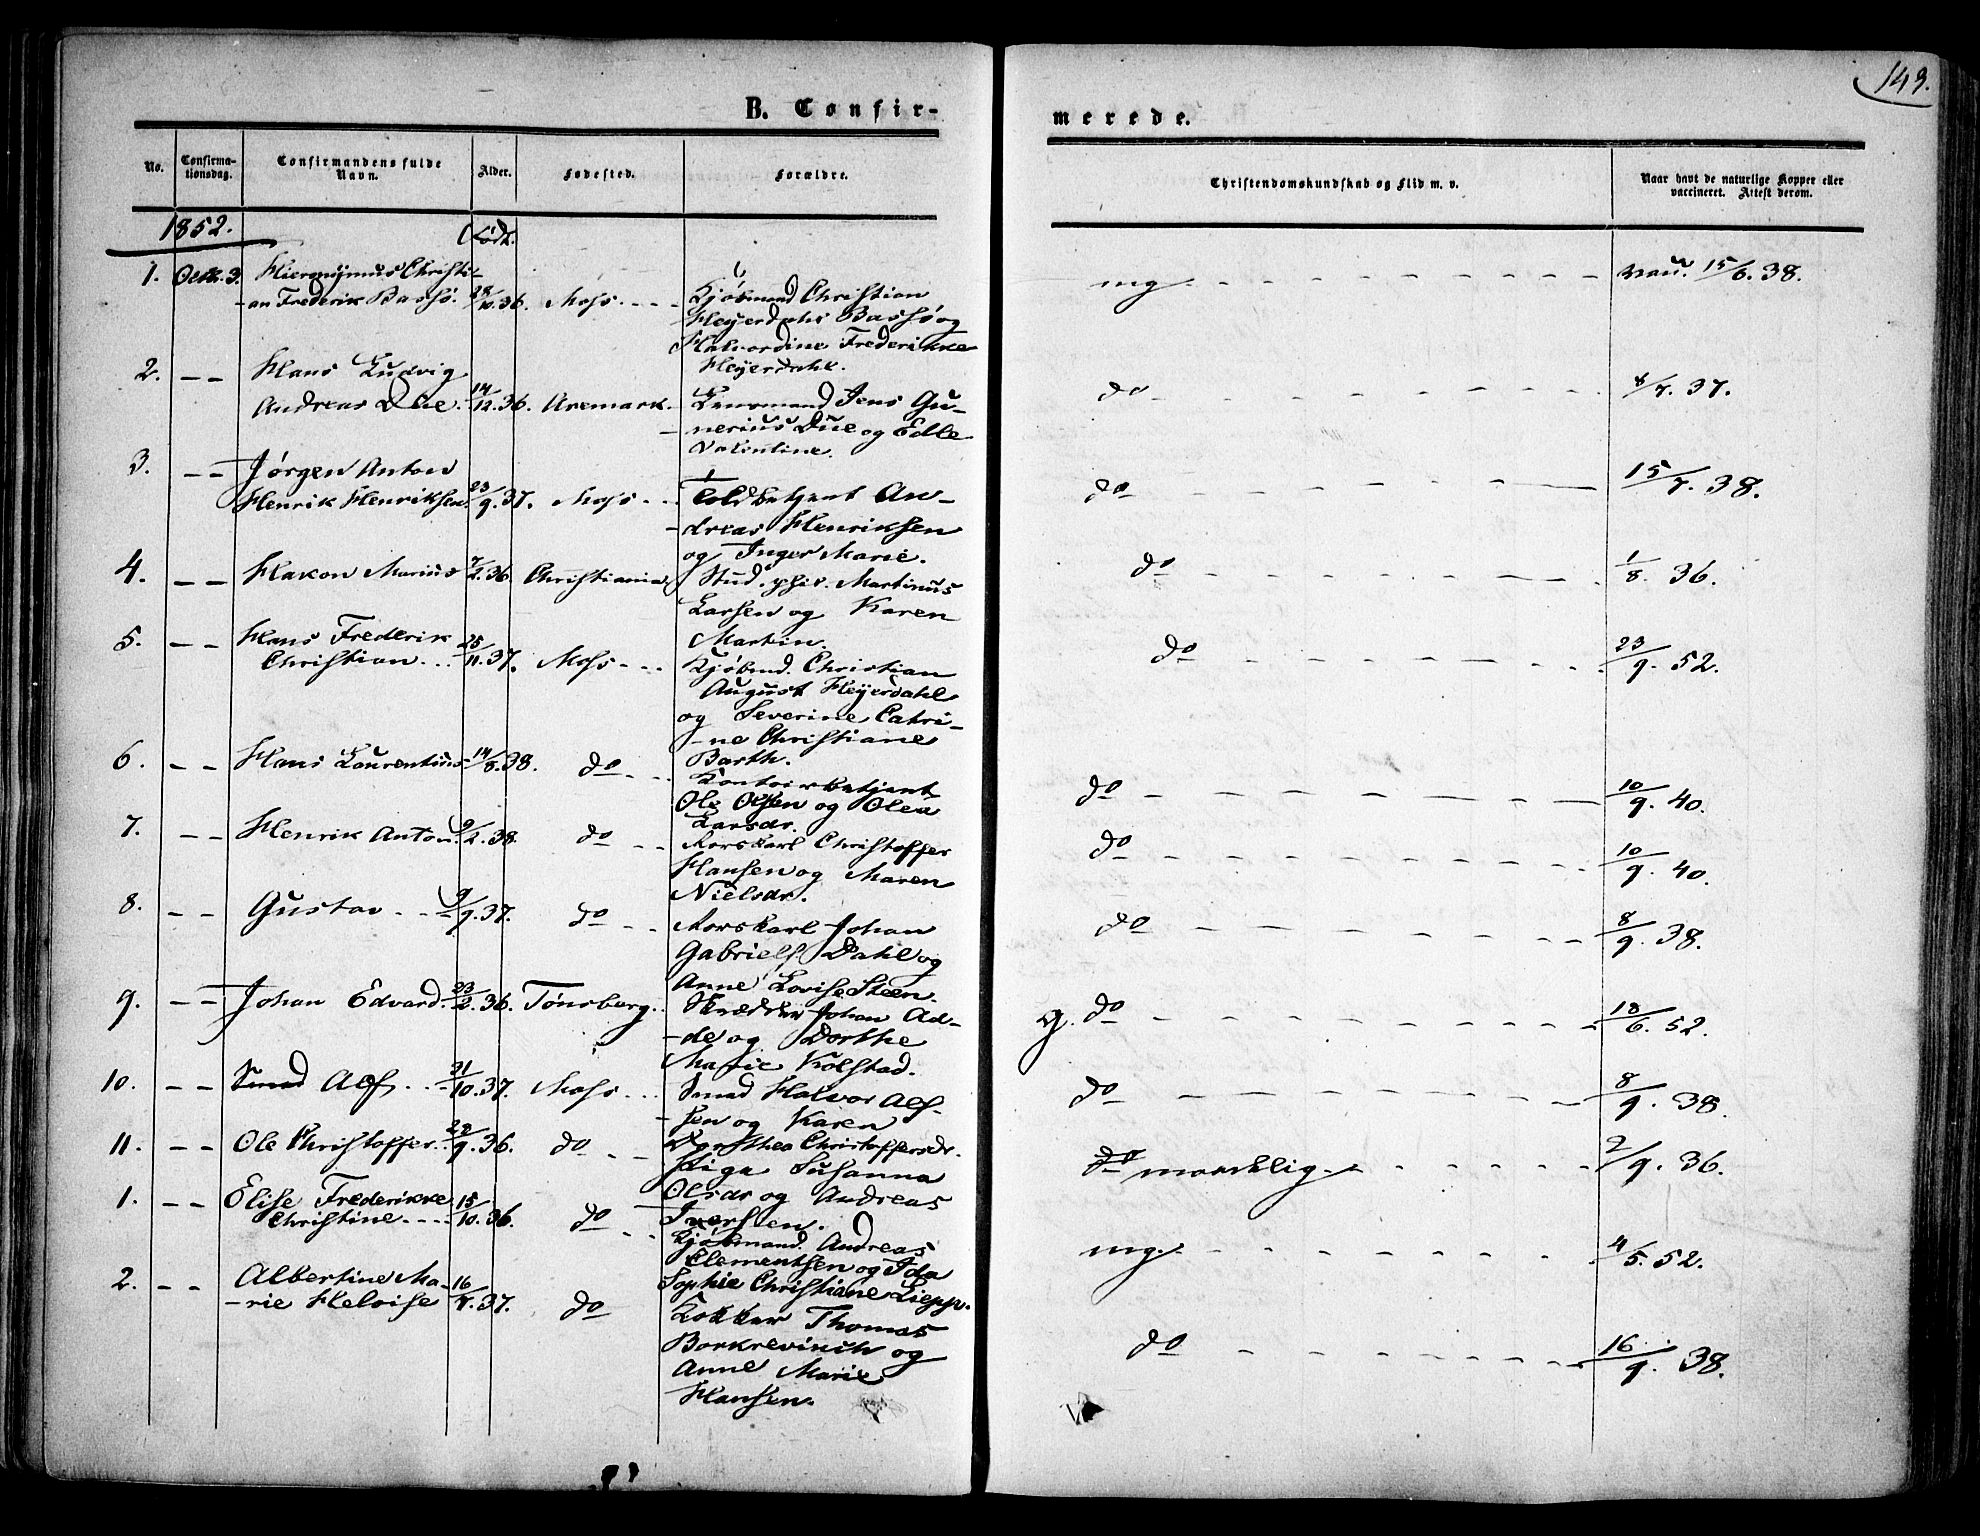 149.
B. Confir-
merede.
No.
Confirma-
tionsdag.
Confirmandens fulde
Navn.
Alder.
Fødested.
Forældre.
Christendomskundskab og Flid m. v.
Naar havt de naturlige Kopper eller
vaccineret. Attest derom.
1852.
Født.
1. Octbr. 3. Hieronymus Christi-
an Frederik Bassø. 28/10. 36. Moss
Kjøbmand Christian
Heyerdahl Bassø og
Halvordine Frederikke
Heyerdahl.
mg
vac. 15/6. 38.
2. Hans Ludvig
Andreas Due. 14/12. 36. Aremark.
Lensmand Jens Gu-
nerius Due og Edle
Valentine.
do
8/7. 37.
3. Jørgen Anton
Henrik Henriksen. 23/9. 37. Moss
Toldbetjent An-
dreas Henriksen
og Inger Marie.
do
15/7. 38.
4. Hakon Marius 7/2. 36. Christiania
Stud. phil. Martinus
Larsen og Karen
Martin.
do
1/8. 36.
5. Hans Frederik
Christian 25/11. 37. Moss
Kjøbmd. Christian
August Heyerdahl
og Severine Cathri-
ne Christiane
Barth.
do
23/9. 52.
6. Hans Laurentius 14/8. 38. do
Kontoirbetjent
Ole Olsen og Olea
Larsdr.
do
10/9. 40.
7. Henrik Anton 9/2. 38. do
Rorskarl Christoffer
Hansen og Maren
Nielsdr.
do
10/9. 40.
8. Gustav 9/9. 37. do
Rorskarl Johan
Gabriels. Dahl og
Anne Lovise Steen.
do
8/9. 38.
9. Johan Edvard. 23/2. 36. Tønsberg
Skrædder Johan Ad-
de og Dorthe
Marie Kolstad.
g. do
18/6. 52.
10. Smed Alf 21/10. 37. Moss
Smed Halvor Alf-
sen og Karen
Dorthea Christoffersdr.
do
8/9. 38.
11. Ole Christoffer. 28/9. 36. do
Pige Susanna
Olsdr og Andreas
Iversen.
do maadelig
2/9. 36.
1. Elise Frederikke
Christine 15/10. 36. do
Kjøbmand. Andreas
Clementsen og Ida
Sophie Christiane Liepp.
mg.
4/5. 52.
2. Albertine Ma-
rie Heloise 16/7. 37. do
Kokker Thomas
Borkrevinck og
Anne Marie
Hansen.
do
16/9. 38.